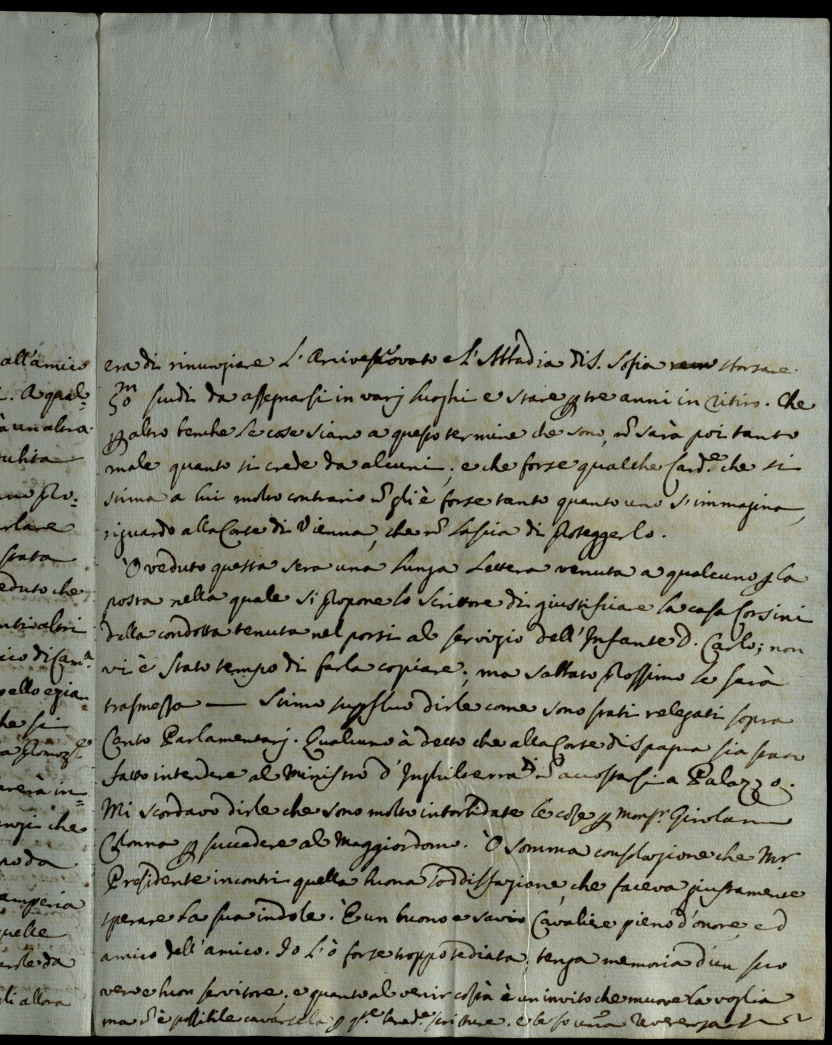 all'amico
. A qual=
à un altra
era di rinunziare L'Arcivescovato e L'Abbadia di S. Sofia sborsare
50 m scudi da assegnarsi in varj luoghi e stare p tre anni in ritiro. Che
p altro benche le cose siano a questo termine che sono, nō sarà poi tanto
male quanto si crede da alcuni, e che forse qualche Card.e che si
stima a lui molto contrario nō gli è forse tanto quanto uno s'immagina,
riguardo alla Corte di Vienna, che nō lascia di proteggerlo.
Ò veduto questa sera una lunga Lettera venuta a qualcuno p la
posta nella quale si propone lo Scrittore di giustificare la casa Corsini
della condotta tenuta nel porsi al servizio dell'Infante D. Carlo; non
vi è stato tempo di farla copiare, ma sabbato prossimo le sarà
trasmessa — Stimo supfluo dirle come sono stati relegati sopra
Cento Parlamentarj. Qualcuno à detto che alla Corte di Spagna sia stato
fatto intendere al Ministro d'Inghilterra di nō accostarsi a Palazzo.
Mi scordavo dirle che sono molto intorbidate le cose p Monsr. Girolamo
Colonna p succedere al Maggiordomo. Ò somma consolazione che Mr.
Presidente incontri quella buona sodisfazione, che faceva giustamente
sperare la sua indole. È un buono e savio Cavaliere pieno d'onore, ed
amico dell'amico. Io L'ò forse troppo tediata, tenga memoria d'un suo
vero e buon servitore, e quanto al venir costà è un invito che muove la voglia
ma nō è possibile cavarsela p q.te bened.e scritture. e le fo una reverenza